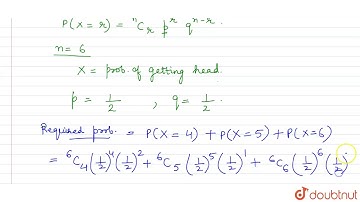 P(X = r) = ⁿCᵣ pʳ qⁿ⁻ʳ.
n = 6
X = prob. of getting head.
p = 1/2 , q = 1/2.
Required prob. = P(X = 4) + P(X = 5) + P(X = 6)
= ⁶C₄ (1/2)⁴ (1/2)² + ⁶C₅ (1/2)⁵ (1/2)¹ + ⁶C₆ (1/2)⁶ (1/2)
doubtnut